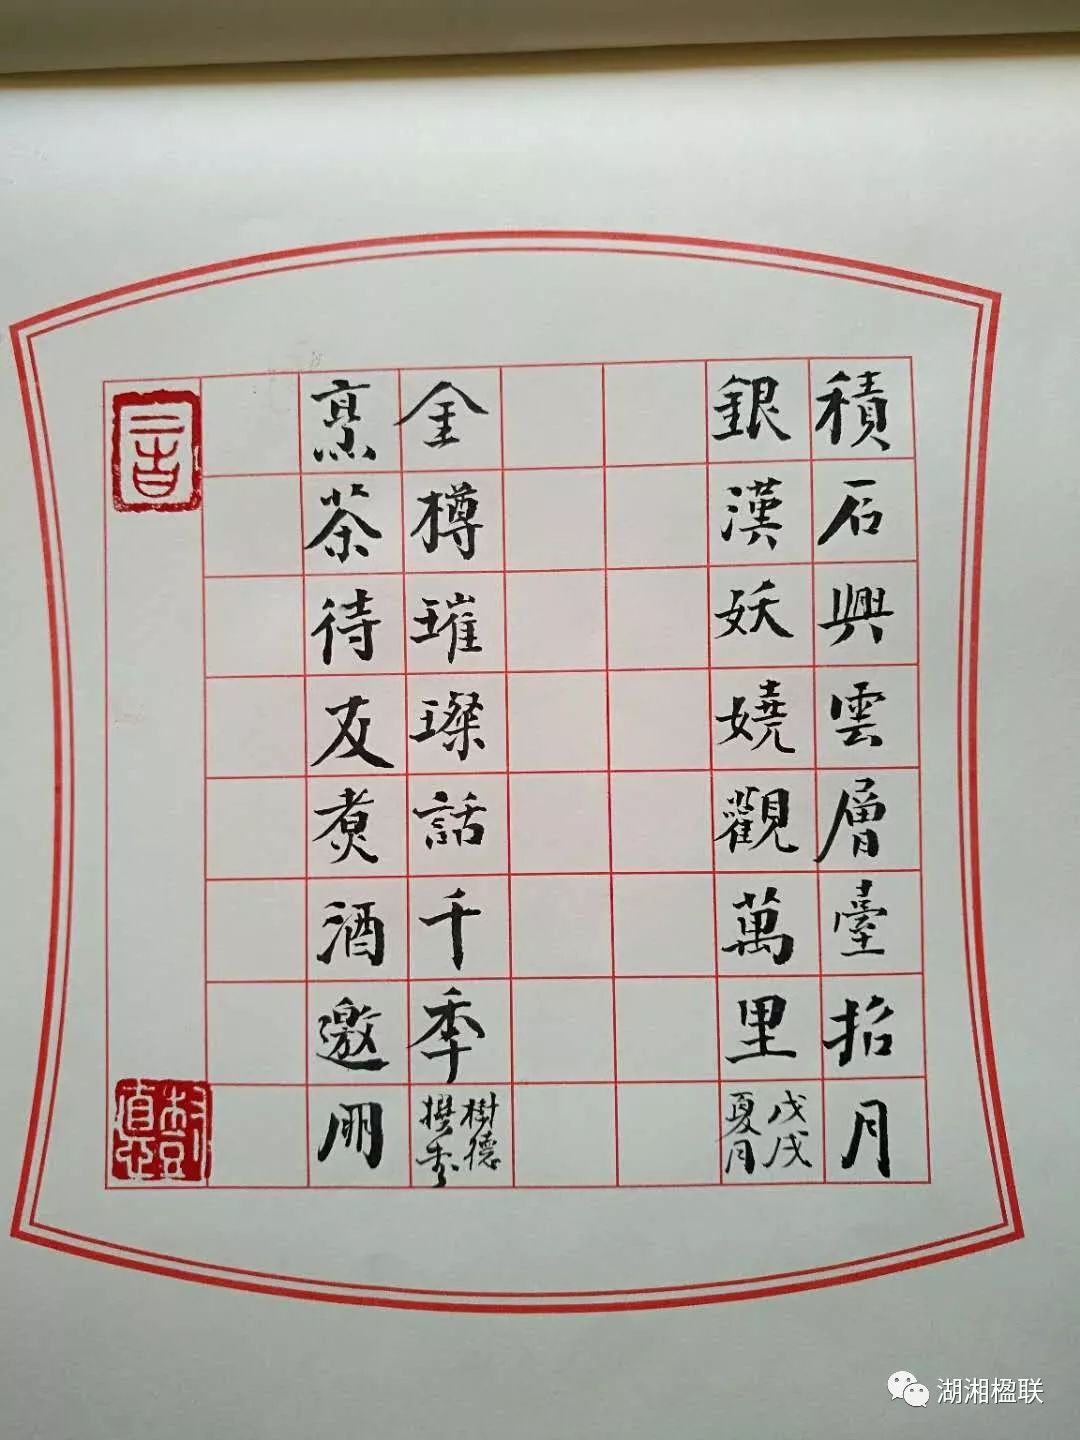 積石興雲層臺招月
銀漢妖嬈觀萬里
戊戌
夏月
金樽璀璨話千季
樹德
撰书
烹茶待友煮酒邀朋
湖湘楹联